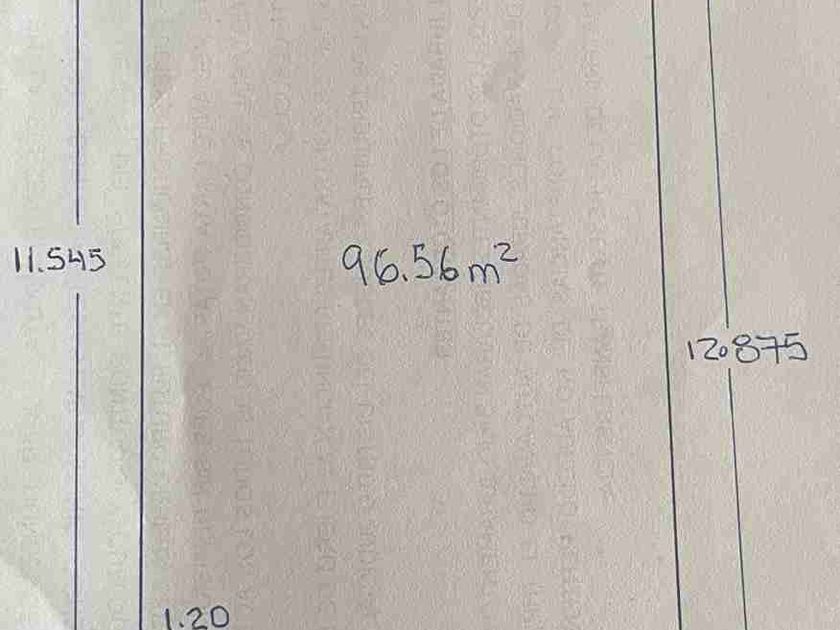 11.545
96.56m²
12.875
1.20